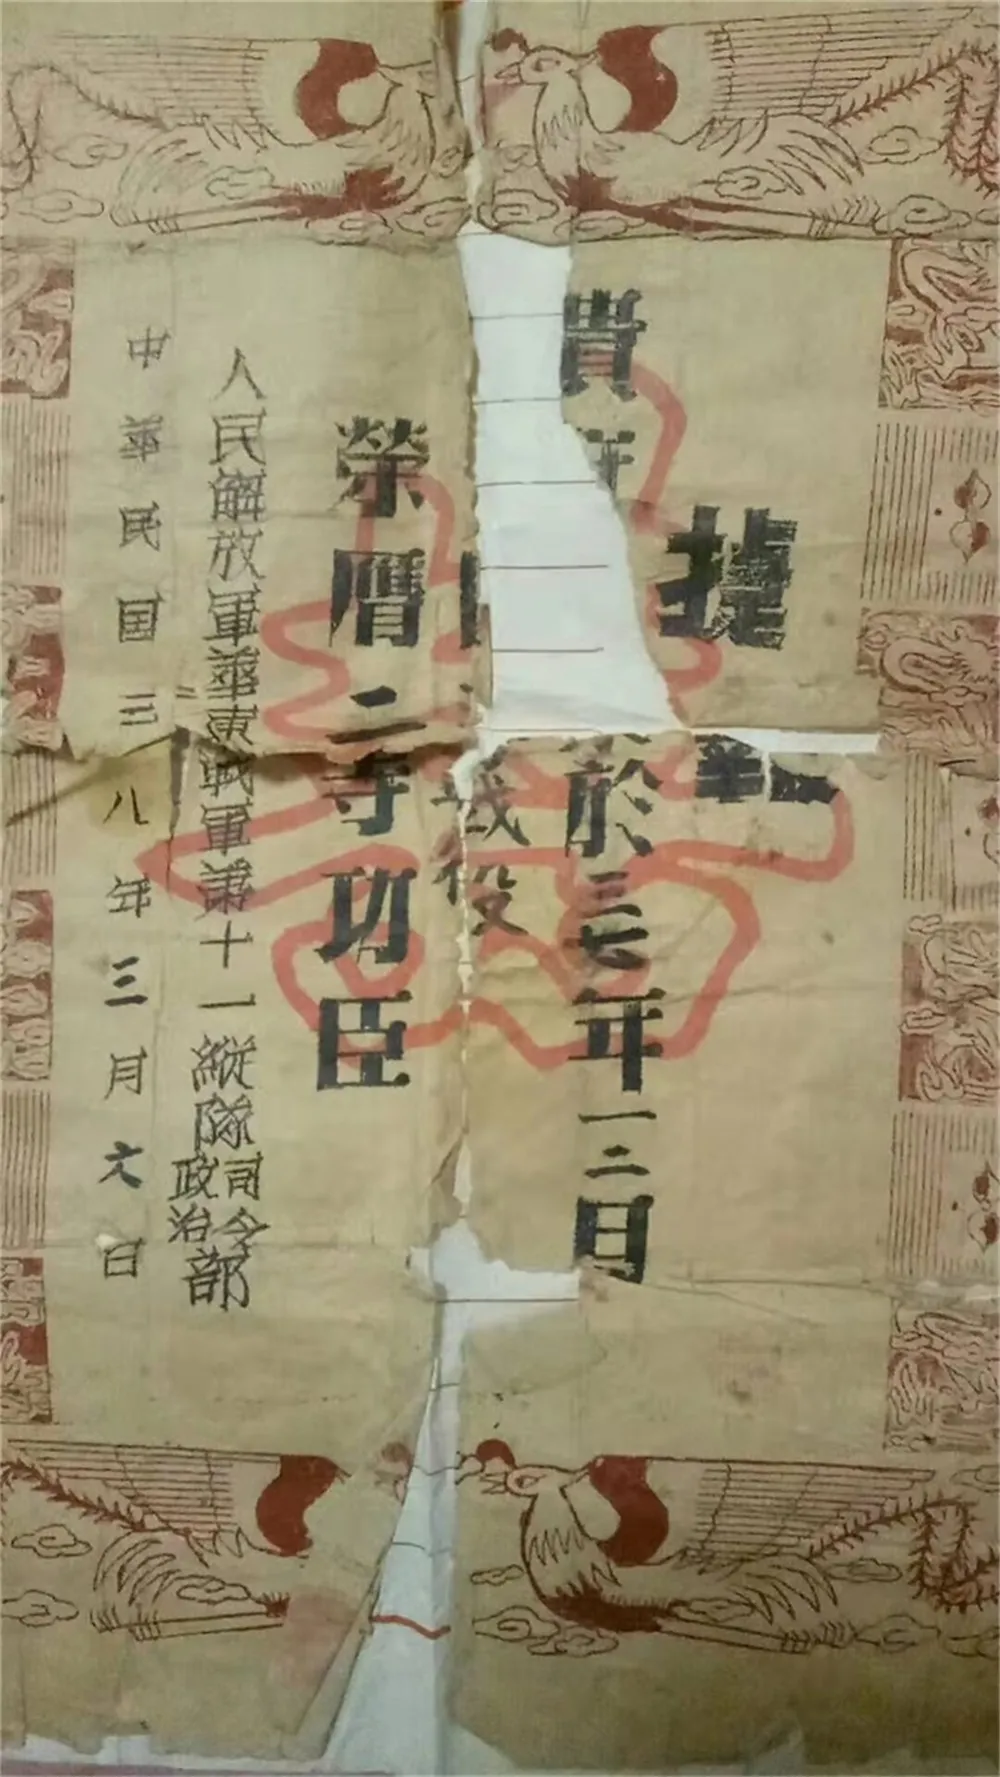 捷
貴
於三七年一二月
戰役
榮膺二等功臣
人民解放軍華東戰軍第十一縱隊司令政治部
中華民国三八年三月六日